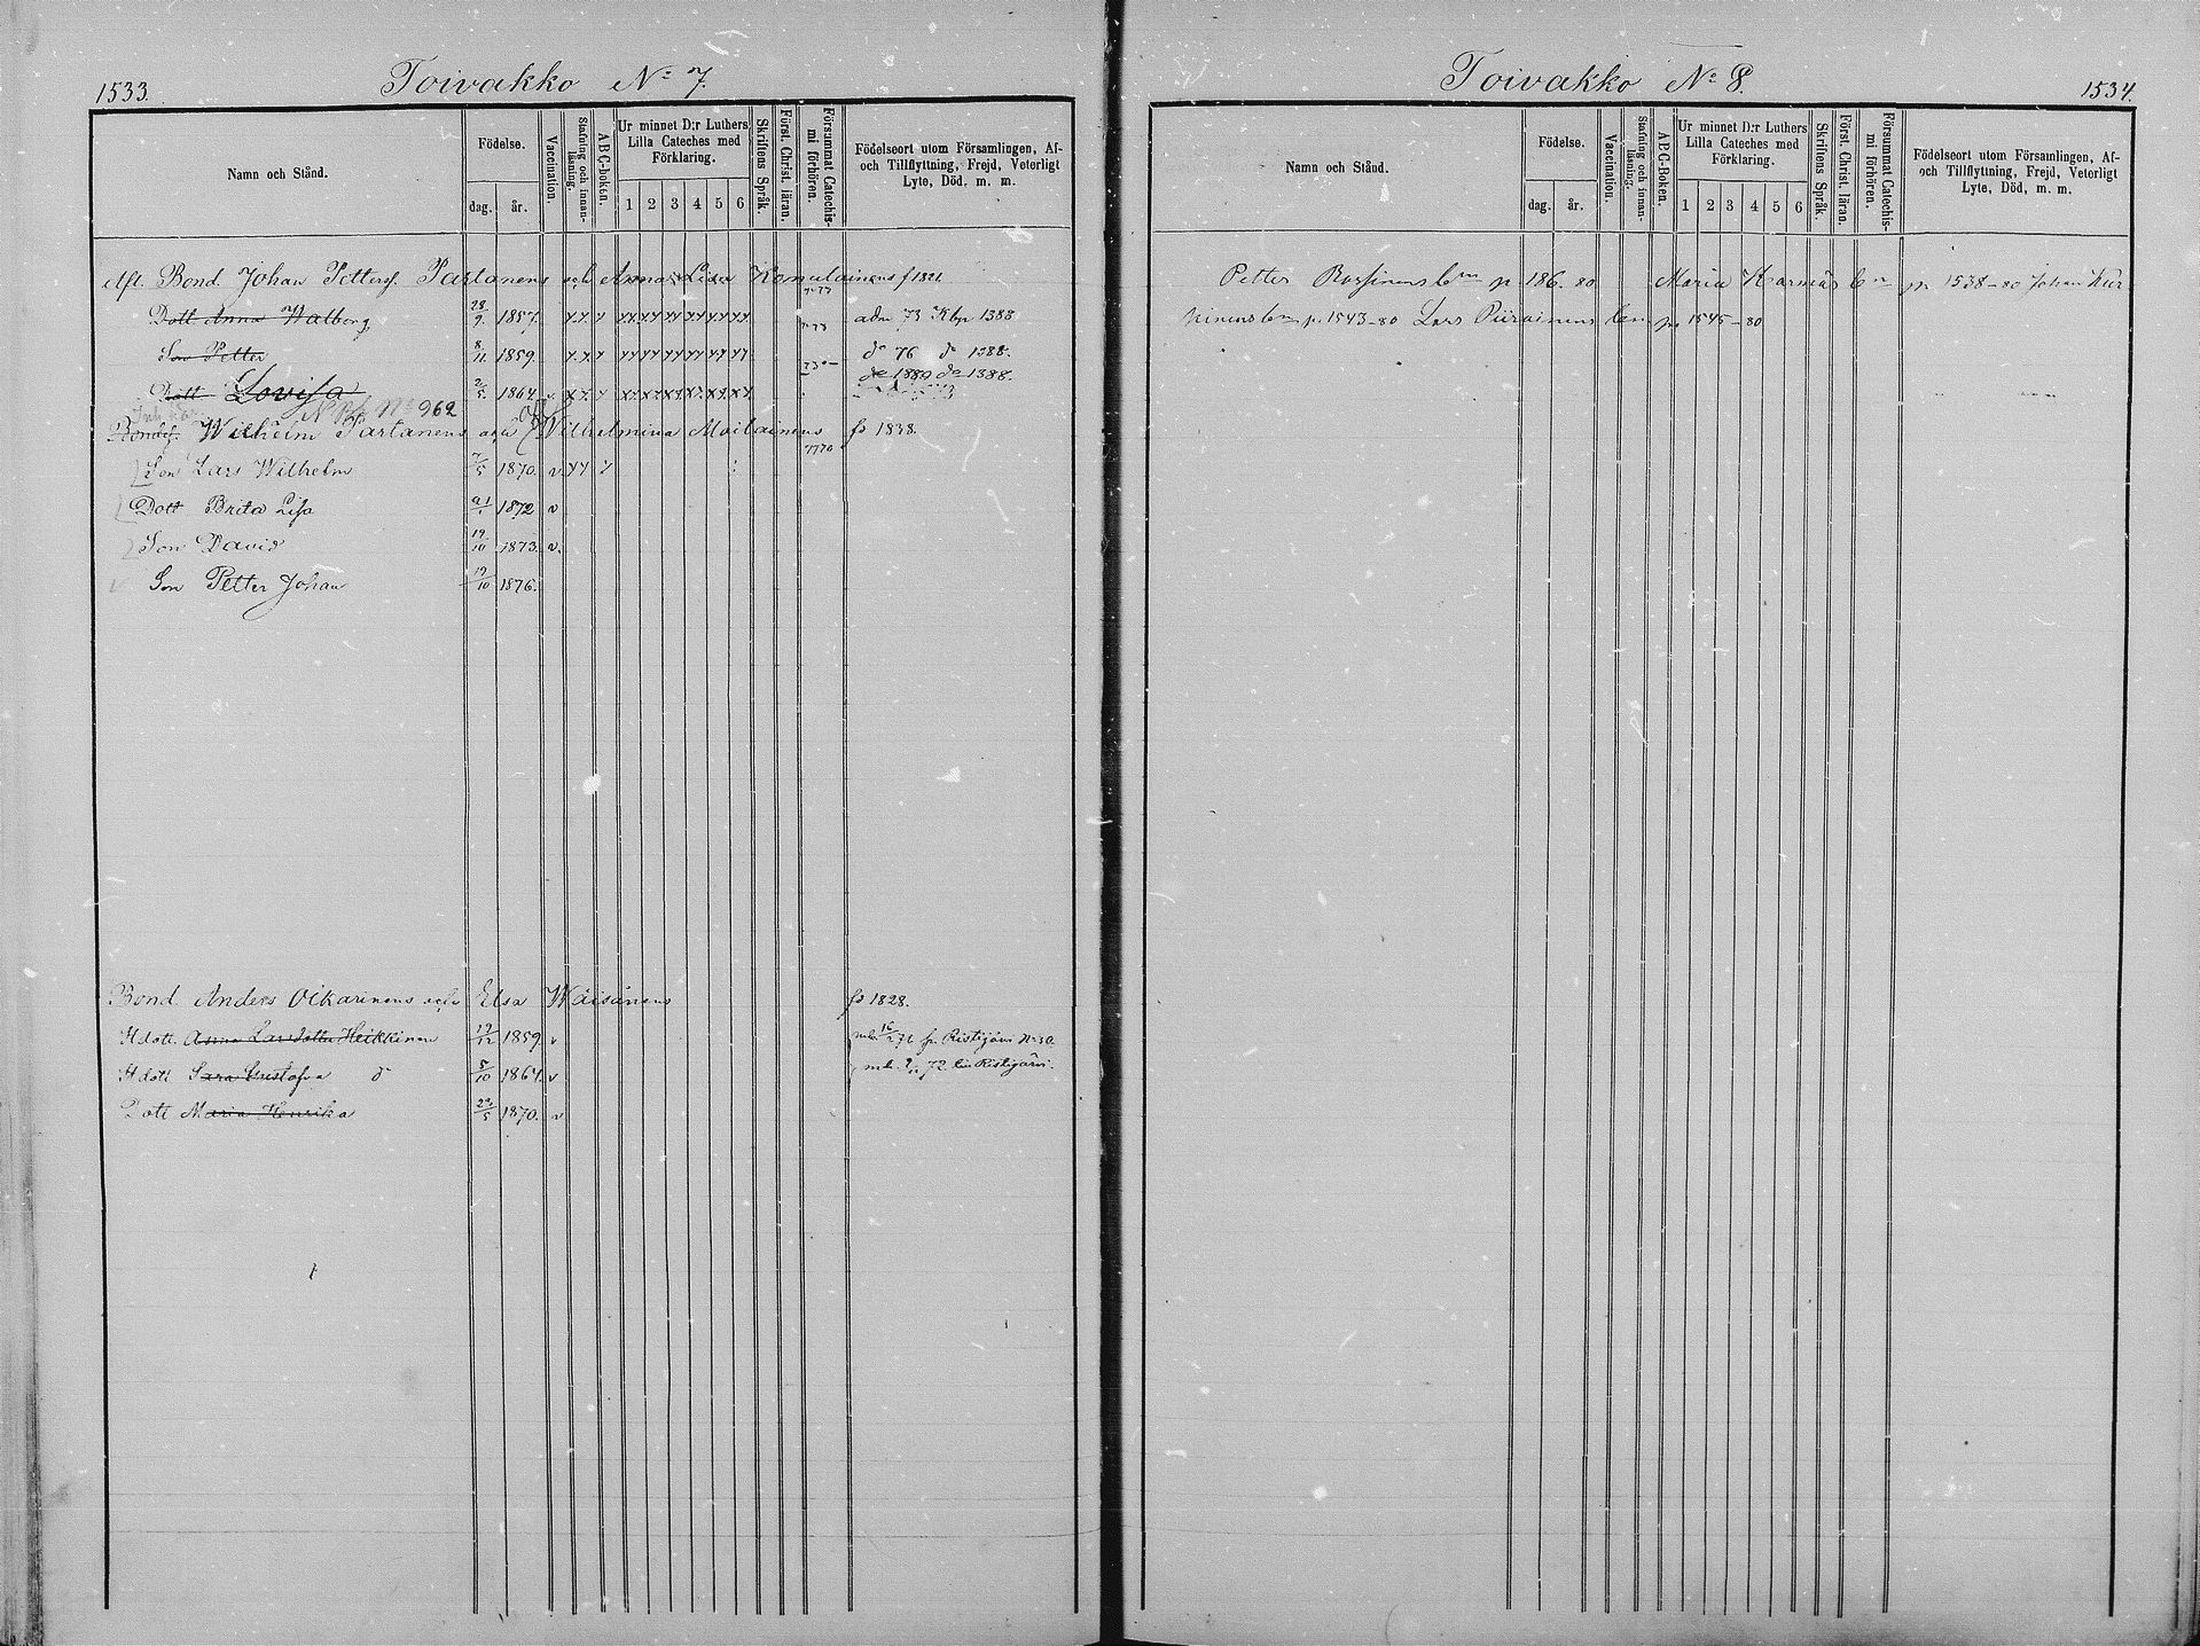 1533. Toivakko No 7.
Namn och Stånd. Födelse. dag. år. Vaccination. Stafning och innan-läsning. ABC-boken. Ur minnet D:r Luthers Lilla Cateches med Förklaring. 1 2 3 4 5 6 Skriftens Språk. Först. Christ. läran. Försummat Catechis-mi förhören. Födelseort utom Församlingen, Af- och Tillflyttning, Frejd, Veterligt Lyte, Död. m. m.
Aft. Bond. Johan Petterss. Partanens och Anna Lisa Komulainens f 1821.
Dott Anna Walborg 28/9 1857. adm 73 Kbp 1388
Son Petter 8/11 1859. do 76 do 1388.
do 1880 do 1388.
Dott Lovisa 2/5 1864
No 962
Bondes. Wilhelm Partanens och Wilhelmina Moilainens fs 1838.
Son Lars Wilhelm 7/5 1870. v
Dott Brita Lisa 21/1 1872 v
Son David 19/10 1873. v.
Son Petter Johan 19/10 1876.
Bond. Anders Oikarinens och Elsa Wäisänens fs 1828.
Hdott. Anna Larsdotter Heikkinen 19/12 1859. v Ristijärvi No 30.
Hdott Sara Gustafva d 5/10 1864. v 72 till Ristijärvi.
Dott Maria Henrika 23/5 1870. v
Toivakko No 8. 1534.
Namn och Stånd. Födelse. dag. år. Vaccination. Stafning och innan-läsning. ABC-Boken. Ur minnet D:r Luthers Lilla Cateches med Förklaring. 1 2 3 4 5 6 Skriftens Språk. Först. Christ. läran. Försummat Catechis-mi förhören. Födelseort utom Församlingen, Af- och Tillflyttning, Frejd, Veterligt Lyte, Död, m. m.
Petter p 186. 80 Maria p. 1538-80 Johan
p. 1543-80 Lars Piirainens p. 1545-80